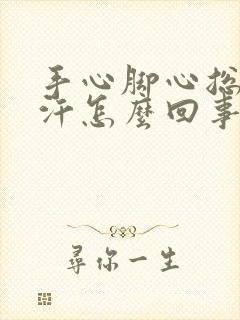 手心脚心总
汗怎麼回事
尋你一生